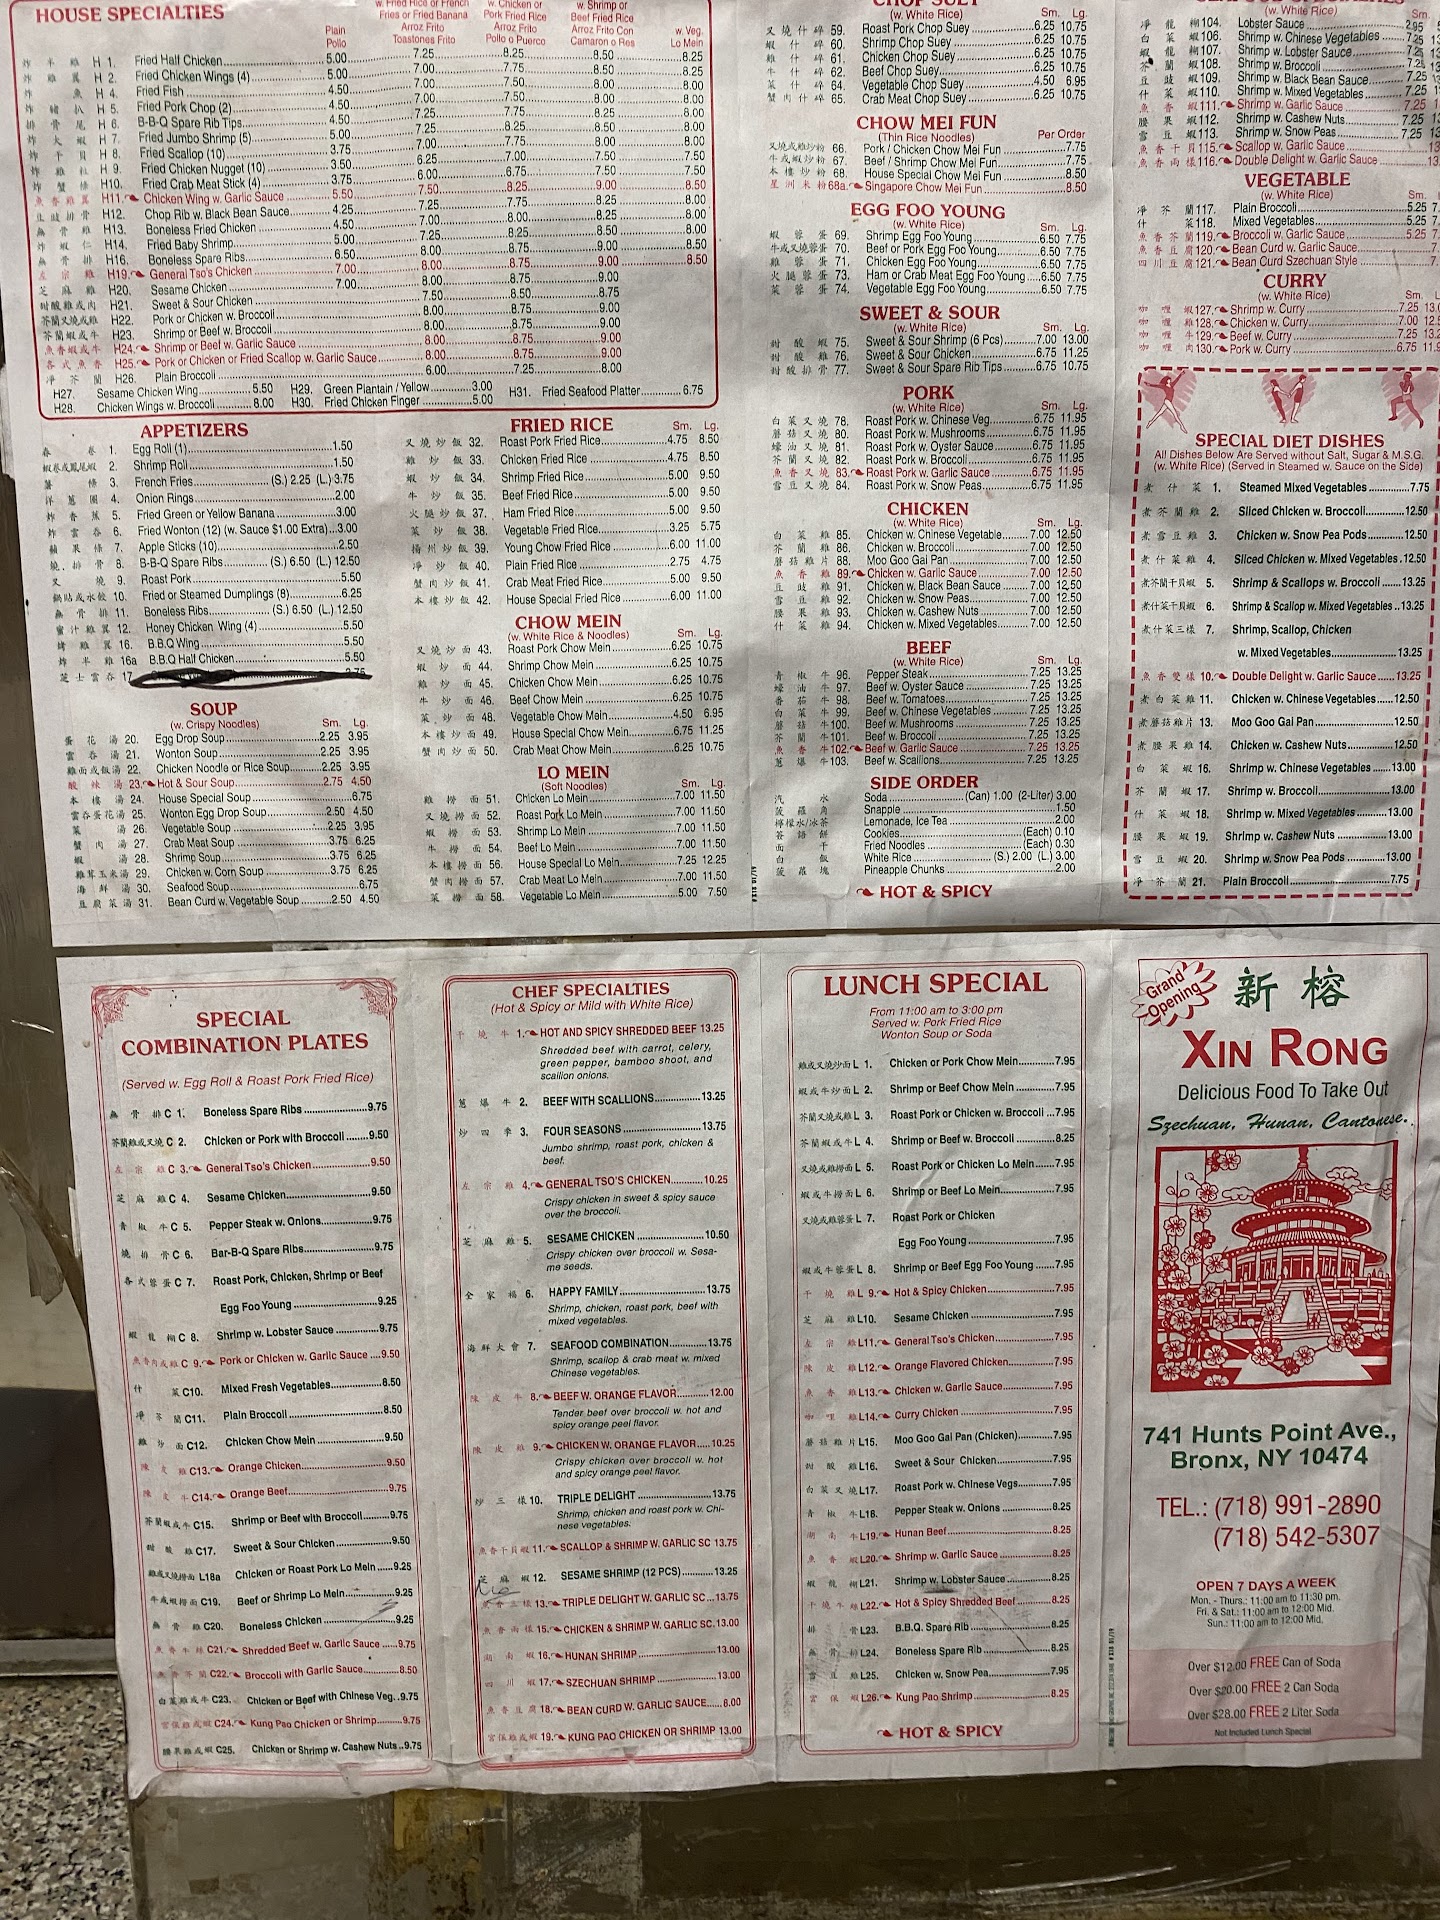 HOUSE SPECIALTIES
Plain Pollo
w. Fried Rice or French Fries or Fried Banana Arroz Frito Toastones Frito
w. Chicken or Pork Fried Rice Arroz Frito Pollo o Puerco
w. Shrimp or Beef Fried Rice Arroz Frito Con Camaron o Res
w. Veg. Lo Mein
炸半雞 H 1. Fried Half Chicken 5.00 7.25 8.25 8.50 8.25
炸雞翼 H 2. Fried Chicken Wings (4) 5.00 7.00 7.75 8.00 8.00
炸魚 H 4. Fried Fish 4.50 7.00 7.75 8.00 8.00
炸豬扒 H 5. Fried Pork Chop (2) 4.50 7.00 7.75 8.00 8.00
排骨尾 H 6. B-B-Q Spare Rib Tips 4.50 7.00 7.75 8.00 8.00
炸大蝦 H 7. Fried Jumbo Shrimp (5) 5.00 7.25 7.75 8.25 8.00
炸干貝 H 8. Fried Scallop (10) 3.75 7.25 7.75 8.00 8.00
炸雞粒 H 9. Fried Chicken Nugget (10) 3.50 6.25 7.00 7.50 7.50
炸蟹條 H10. Fried Crab Meat Stick (4) 3.75 6.00 7.00 7.50 7.50
魚香雞翼 H11. Chicken Wing w. Garlic Sauce 5.50 7.50 8.25 9.00 8.50
豆豉排骨 H12. Chop Rib w. Black Bean Sauce 4.25
無骨雞 H13. Boneless Fried Chicken 4.50
炸蝦仁 H14. Fried Baby Shrimp 5.00
無骨排 H16. Boneless Spare Ribs 6.50
左宗雞 H19. General Tso's Chicken 7.00 8.00 8.75 9.00 8.50
芝麻雞 H20. Sesame Chicken 7.00 8.00 8.75 9.00
甜酸雞或肉 H21. Sweet & Sour Chicken 7.50 8.50 8.75
芥蘭叉燒或雞 H22. Pork or Chicken w. Broccoli 8.00 8.75 9.00
芥蘭蝦或牛 H23. Shrimp or Beef w. Broccoli 8.00 8.75 9.00
魚香蝦或牛 H24. Shrimp or Beef w. Garlic Sauce 8.00 8.75 9.00
各式魚香 H25. Pork or Chicken or Fried Scallop w. Garlic Sauce 8.00 8.75 9.00
淨芥蘭 H26. Plain Broccoli 6.00 7.25 8.00
H27. Sesame Chicken Wing 5.50 H29. Green Plantain / Yellow 3.00 H31. Fried Seafood Platter 6.75
H28. Chicken Wings w. Broccoli 8.00 H30. Fried Chicken Finger 5.00
APPETIZERS
春卷 1. Egg Roll (1) 1.50
蝦卷或鳳尾蝦 2. Shrimp Roll 1.50
薯條 3. French Fries (S.) 2.25 (L.) 3.75
洋蔥圈 4. Onion Rings 2.00
炸香蕉 5. Fried Green or Yellow Banana 3.00
炸雲吞 6. Fried Wonton (12) (w. Sauce $1.00 Extra) 3.00
蘋果條 7. Apple Sticks (10) 2.50
燒排骨 8. B-B-Q Spare Ribs (S.) 6.50 (L.) 12.50
叉燒 9. Roast Pork 5.50
鍋貼或水餃 10. Fried or Steamed Dumplings (8) 6.25
無骨排 11. Boneless Ribs (S.) 6.50 (L.) 12.50
蜜汁雞翼 12. Honey Chicken Wing (4) 5.50
烤雞翼 16. B.B.Q Wing 5.50
炸半雞 16a B.B.Q Half Chicken 5.50
芝士雲吞 17
SOUP
(w. Crispy Noodles) Sm. Lg.
蛋花湯 20. Egg Drop Soup 2.25 3.95
雲吞湯 21. Wonton Soup 2.25 3.95
雞面或飯湯 22. Chicken Noodle or Rice Soup 2.25 3.95
酸辣湯 23. Hot & Sour Soup 2.75 4.50
本樓湯 24. House Special Soup 6.75
雲吞蛋花湯 25. Wonton Egg Drop Soup 2.50 4.50
菜湯 26. Vegetable Soup 2.25 3.95
蟹肉湯 27. Crab Meat Soup 3.75 6.25
蝦湯 28. Shrimp Soup 3.75 6.25
雞茸玉米湯 29. Chicken w. Corn Soup 3.75 6.25
海鮮湯 30. Seafood Soup 6.75
豆腐菜湯 31. Bean Curd w. Vegetable Soup 2.50 4.50
FRIED RICE Sm. Lg.
叉燒炒飯 32. Roast Pork Fried Rice 4.75 8.50
雞炒飯 33. Chicken Fried Rice 4.75 8.50
蝦炒飯 34. Shrimp Fried Rice 5.00 9.50
牛炒飯 35. Beef Fried Rice 5.00 9.50
火腿炒飯 37. Ham Fried Rice 5.00 9.50
菜炒飯 38. Vegetable Fried Rice 3.25 5.75
揚州炒飯 39. Young Chow Fried Rice 6.00 11.00
淨炒飯 40. Plain Fried Rice 2.75 4.75
蟹肉炒飯 41. Crab Meat Fried Rice 5.00 9.50
本樓炒飯 42. House Special Fried Rice 6.00 11.00
CHOW MEIN
(w. White Rice & Noodles) Sm. Lg.
叉燒炒面 43. Roast Pork Chow Mein 6.25 10.75
蝦炒面 44. Shrimp Chow Mein 6.25 10.75
雞炒面 45. Chicken Chow Mein 6.25 10.75
牛炒面 46. Beef Chow Mein 6.25 10.75
菜炒面 48. Vegetable Chow Mein 4.50 6.95
本樓炒面 49. House Special Chow Mein 6.75 11.25
蟹肉炒面 50. Crab Meat Chow Mein 6.25 10.75
LO MEIN
(Soft Noodles) Sm. Lg.
雞撈面 51. Chicken Lo Mein 7.00 11.50
叉燒撈面 52. Roast Pork Lo Mein 7.00 11.50
蝦撈面 53. Shrimp Lo Mein 7.00 11.50
牛撈面 54. Beef Lo Mein 7.00 11.50
本樓撈面 56. House Special Lo Mein 7.25 12.25
蟹肉撈面 57. Crab Meat Lo Mein 7.00 11.50
菜撈面 58. Vegetable Lo Mein 5.00 7.50
CHOP SUEY
(w. White Rice) Sm. Lg.
叉燒什碎 59. Roast Pork Chop Suey 6.25 10.75
蝦什碎 60. Shrimp Chop Suey 6.25 10.75
雞什碎 61. Chicken Chop Suey 6.25 10.75
牛什碎 62. Beef Chop Suey 6.25 10.75
菜什碎 64. Vegetable Chop Suey 4.50 6.95
蟹肉什碎 65. Crab Meat Chop Suey 6.25 10.75
CHOW MEI FUN
(Thin Rice Noodles) Per Order
叉燒或雞炒粉 66. Pork / Chicken Chow Mei Fun 7.75
牛或蝦炒粉 67. Beef / Shrimp Chow Mei Fun 7.75
本樓炒粉 68. House Special Chow Mei Fun 8.50
星洲米粉 68a. Singapore Chow Mei Fun 8.50
EGG FOO YOUNG
(w. White Rice) Sm. Lg.
蝦蓉蛋 69. Shrimp Egg Foo Young 6.50 7.75
牛或叉燒蓉蛋 70. Beef or Pork Egg Foo Young 6.50 7.75
雞蓉蛋 71. Chicken Egg Foo Young 6.50 7.75
火腿蓉蛋 73. Ham or Crab Meat Egg Foo Young 6.50 7.75
菜蓉蛋 74. Vegetable Egg Foo Young 6.50 7.75
SWEET & SOUR
(w. White Rice) Sm. Lg.
甜酸蝦 75. Sweet & Sour Shrimp (6 Pcs) 7.00 13.00
甜酸雞 76. Sweet & Sour Chicken 6.75 11.25
甜酸排骨 77. Sweet & Sour Spare Rib Tips 6.75 10.75
PORK
(w. White Rice) Sm. Lg.
白菜叉燒 78. Roast Pork w. Chinese Veg. 6.75 11.95
蘑菇叉燒 80. Roast Pork w. Mushrooms 6.75 11.95
蠔油叉燒 81. Roast Pork w. Oyster Sauce 6.75 11.95
芥蘭叉燒 82. Roast Pork w. Broccoli 6.75 11.95
魚香叉燒 83. Roast Pork w. Garlic Sauce 6.75 11.95
雪豆叉燒 84. Roast Pork w. Snow Peas 6.75 11.95
CHICKEN
(w. White Rice) Sm. Lg.
白菜雞 85. Chicken w. Chinese Vegetable 7.00 12.50
芥蘭雞 86. Chicken w. Broccoli 7.00 12.50
蘑菇雞片 88. Moo Goo Gai Pan 7.00 12.50
魚香雞 89. Chicken w. Garlic Sauce 7.00 12.50
豆豉雞 91. Chicken w. Black Bean Sauce 7.00 12.50
雪豆雞 92. Chicken w. Snow Peas 7.00 12.50
腰果雞 93. Chicken w. Cashew Nuts 7.00 12.50
什菜雞 94. Chicken w. Mixed Vegetables 7.00 12.50
BEEF
(w. White Rice) Sm. Lg.
青椒牛 96. Pepper Steak 7.25 13.25
蠔油牛 97. Beef w. Oyster Sauce 7.25 13.25
番茄牛 98. Beef w. Tomatoes 7.25 13.25
白菜牛 99. Beef w. Chinese Vegetables 7.25 13.25
蘑菇牛 100. Beef w. Mushrooms 7.25 13.25
芥蘭牛 101. Beef w. Broccoli 7.25 13.25
魚香牛 102. Beef w. Garlic Sauce 7.25 13.25
蔥爆牛 103. Beef w. Scallions 7.25 13.25
SIDE ORDER
汽水 Soda (Can) 1.00 (2-Liter) 3.00
菠蘿角 Snapple 1.50
檸檬水/冰茶 Lemonade, Ice Tea 2.00
簽語餅 Cookies (Each) 0.10
面干 Fried Noodles (Each) 0.30
白飯 White Rice (S.) 2.00 (L.) 3.00
菠蘿塊 Pineapple Chunks 2.00
HOT & SPICY
(w. White Rice) Sm.
淨龍糊 104. Lobster Sauce 2.95
白菜蝦 106. Shrimp w. Chinese Vegetables 7.25
蝦龍糊 107. Shrimp w. Lobster Sauce 7.25
芥蘭蝦 108. Shrimp w. Broccoli 7.25
豆豉蝦 109. Shrimp w. Black Bean Sauce 7.25
什菜蝦 110. Shrimp w. Mixed Vegetables 7.25
魚香蝦 111. Shrimp w. Garlic Sauce 7.25
腰果蝦 112. Shrimp w. Cashew Nuts 7.25
雪豆蝦 113. Shrimp w. Snow Peas 7.25
魚香干貝 115. Scallop w. Garlic Sauce
魚香兩樣 116. Double Delight w. Garlic Sauce
VEGETABLE
(w. White Rice)
淨芥蘭 117. Plain Broccoli 5.25
什菜 118. Mixed Vegetables 5.25
魚香芥蘭 119. Broccoli w. Garlic Sauce 5.25
魚香豆腐 120. Bean Curd w. Garlic Sauce
四川豆腐 121. Bean Curd Szechuan Style
CURRY
(w. White Rice) Sm.
咖喱蝦 127. Shrimp w. Curry 7.25
咖喱雞 128. Chicken w. Curry 7.00
咖喱牛 129. Beef w. Curry 7.25
咖喱肉 130. Pork w. Curry 6.75
SPECIAL DIET DISHES
All Dishes Below Are Served without Salt, Sugar & M.S.G.
(w. White Rice) (Served in Steamed w. Sauce on the Side)
煮什菜 1. Steamed Mixed Vegetables 7.75
煮芥蘭雞 2. Sliced Chicken w. Broccoli 12.50
煮雪豆雞 3. Chicken w. Snow Pea Pods 12.50
煮什菜雞 4. Sliced Chicken w. Mixed Vegetables 12.50
煮芥蘭干貝蝦 5. Shrimp & Scallops w. Broccoli 13.25
煮什菜干貝蝦 6. Shrimp & Scallop w. Mixed Vegetables 13.25
煮什菜三樣 7. Shrimp, Scallop, Chicken
w. Mixed Vegetables 13.25
魚香雙樣 10. Double Delight w. Garlic Sauce 13.25
煮白菜雞 11. Chicken w. Chinese Vegetables 12.50
煮蘑菇雞片 13. Moo Goo Gai Pan 12.50
煮腰果雞 14. Chicken w. Cashew Nuts 12.50
白菜蝦 16. Shrimp w. Chinese Vegetables 13.00
芥蘭蝦 17. Shrimp w. Broccoli 13.00
什菜蝦 18. Shrimp w. Mixed Vegetables 13.00
腰果蝦 19. Shrimp w. Cashew Nuts 13.00
雪豆蝦 20. Shrimp w. Snow Pea Pods 13.00
淨芥蘭 21. Plain Broccoli 7.75
SPECIAL
COMBINATION PLATES
(Served w. Egg Roll & Roast Pork Fried Rice)
無骨排 C 1. Boneless Spare Ribs 9.75
芥蘭雞或叉燒 C 2. Chicken or Pork with Broccoli 9.50
左宗雞 C 3. General Tso's Chicken 9.50
芝麻雞 C 4. Sesame Chicken 9.50
青椒牛 C 5. Pepper Steak w. Onions 9.75
燒排骨 C 6. Bar-B-Q Spare Ribs 9.75
各式蓉蛋 C 7. Roast Pork, Chicken, Shrimp or Beef
Egg Foo Young 9.25
蝦龍糊 C 8. Shrimp w. Lobster Sauce 9.75
魚香肉或雞 C 9. Pork or Chicken w. Garlic Sauce 9.50
什菜 C10. Mixed Fresh Vegetables 8.50
淨芥蘭 C11. Plain Broccoli 8.50
雞炒面 C12. Chicken Chow Mein 9.50
陳皮雞 C13. Orange Chicken 9.50
陳皮牛 C14. Orange Beef 9.75
芥蘭蝦或牛 C15. Shrimp or Beef with Broccoli 9.75
甜酸雞 C17. Sweet & Sour Chicken 9.50
雞或叉燒撈面 L18a Chicken or Roast Pork Lo Mein 9.25
牛或蝦撈面 C19. Beef or Shrimp Lo Mein 9.25
無骨雞 C20. Boneless Chicken 9.25
魚香牛絲 C21. Shredded Beef w. Garlic Sauce 9.75
魚香芥蘭 C22. Broccoli with Garlic Sauce 8.50
白菜雞或牛 C23. Chicken or Beef with Chinese Veg. 9.75
宮保雞或蝦 C24. Kung Pao Chicken or Shrimp 9.75
腰果雞或蝦 C25. Chicken or Shrimp w. Cashew Nuts 9.75
CHEF SPECIALTIES
(Hot & Spicy or Mild with White Rice)
干燒牛 1. HOT AND SPICY SHREDDED BEEF 13.25
Shredded beef with carrot, celery,
green pepper, bamboo shoot, and
scallion onions.
蔥爆牛 2. BEEF WITH SCALLIONS 13.25
炒四季 3. FOUR SEASONS 13.75
Jumbo shrimp, roast pork, chicken &
beef.
左宗雞 4. GENERAL TSO'S CHICKEN 10.25
Crispy chicken in sweet & spicy sauce
over the broccoli.
芝麻雞 5. SESAME CHICKEN 10.50
Crispy chicken over broccoli w. Sesa-
me seeds.
全家福 6. HAPPY FAMILY 13.75
Shrimp, chicken, roast pork, beef with
mixed vegetables.
海鮮大會 7. SEAFOOD COMBINATION 13.75
Shrimp, scallop & crab meat w. mixed
Chinese vegetables.
陳皮牛 8. BEEF W. ORANGE FLAVOR 12.00
Tender beef over broccoli w. hot and
spicy orange peel flavor.
陳皮雞 9. CHICKEN W. ORANGE FLAVOR 10.25
Crispy chicken over broccoli w. hot
and spicy orange peel flavor.
炒三樣 10. TRIPLE DELIGHT 13.75
Shrimp, chicken and roast pork w. Chi-
nese vegetables.
魚香干貝蝦 11. SCALLOP & SHRIMP W. GARLIC SC 13.75
芝麻蝦 12. SESAME SHRIMP (12 PCS) 13.25
魚香三樣 13. TRIPLE DELIGHT W. GARLIC SC 13.75
魚香兩樣 15. CHICKEN & SHRIMP W. GARLIC SC. 13.00
湖南蝦 16. HUNAN SHRIMP 13.00
四川蝦 17. SZECHUAN SHRIMP 13.00
魚香豆腐 18. BEAN CURD W. GARLIC SAUCE 8.00
宮保雞或蝦 19. KUNG PAO CHICKEN OR SHRIMP 13.00
LUNCH SPECIAL
From 11:00 am to 3:00 pm
Served w. Pork Fried Rice
Wonton Soup or Soda
雞或叉燒炒面 L 1. Chicken or Pork Chow Mein 7.95
蝦或牛炒面 L 2. Shrimp or Beef Chow Mein 7.95
芥蘭叉燒或雞 L 3. Roast Pork or Chicken w. Broccoli 7.95
芥蘭蝦或牛 L 4. Shrimp or Beef w. Broccoli 8.25
叉燒或雞撈面 L 5. Roast Pork or Chicken Lo Mein 7.95
蝦或牛撈面 L 6. Shrimp or Beef Lo Mein 7.95
叉燒或雞蓉蛋 L 7. Roast Pork or Chicken
Egg Foo Young 7.95
蝦或牛蓉蛋 L 8. Shrimp or Beef Egg Foo Young 7.95
干燒雞 L 9. Hot & Spicy Chicken 7.95
芝麻雞 L10. Sesame Chicken 7.95
左宗雞 L11. General Tso's Chicken 7.95
陳皮雞 L12. Orange Flavored Chicken 7.95
魚香雞 L13. Chicken w. Garlic Sauce 7.95
咖喱雞 L14. Curry Chicken 7.95
蘑菇雞片 L15. Moo Goo Gai Pan (Chicken) 7.95
甜酸雞 L16. Sweet & Sour Chicken 7.95
白菜叉燒 L17. Roast Pork w. Chinese Vegs 7.95
青椒牛 L18. Pepper Steak w. Onions 8.25
湖南牛 L19. Hunan Beef 8.25
魚香蝦 L20. Shrimp w. Garlic Sauce 8.25
蝦龍糊 L21. Shrimp w. Lobster Sauce 8.25
干燒牛絲 L22. Hot & Spicy Shredded Beef 8.25
排骨 L23. B.B.Q. Spare Rib 8.25
無骨排 L24. Boneless Spare Rib 8.25
雪豆雞 L25. Chicken w. Snow Pea 7.95
宮保蝦 L26. Kung Pao Shrimp 8.25
HOT & SPICY
Grand
Opening
新榕
XIN RONG
Delicious Food To Take Out
Szechuan, Hunan, Cantonese.
741 Hunts Point Ave.,
Bronx, NY 10474
TEL.: (718) 991-2890
(718) 542-5307
OPEN 7 DAYS A WEEK
Mon. - Thurs.: 11:00 am to 11:30 pm.
Fri. & Sat.: 11:00 am to 12:00 Mid.
Sun.: 11:00 am to 12:00 Mid.
Over $12.00 FREE Can of Soda
Over $20.00 FREE 2 Can Soda
Over $28.00 FREE 2 Liter Soda
Not Included Lunch Special